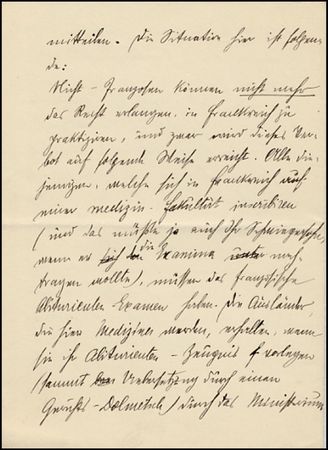 mitteilen. Die Situation hier ist folgen-
de:
Nicht-Franzosen können nicht mehr
das Recht erlangen, in Frankreich zu
praktizieren, und zwar wird dieses Ver-
bot auf folgende Weise erreicht. Alle die-
jenigen, welche sich in Frankreich auf
einer medizin. Fakultät inscribieren
(und das müßte ja auch Ihr Schwiegersohn,
wenn er die Examina nach-
tragen wollte), müssen das französische
Abiturienten-Examen haben. Die Ausländer,
die hier Mediziner werden, erhalten, wenn
sie ihr Abiturienten-Zeugnis vorlegen
(sammt Uebersetzung durch einen
Gerichts-Dolmetsch) durch das Ministerium